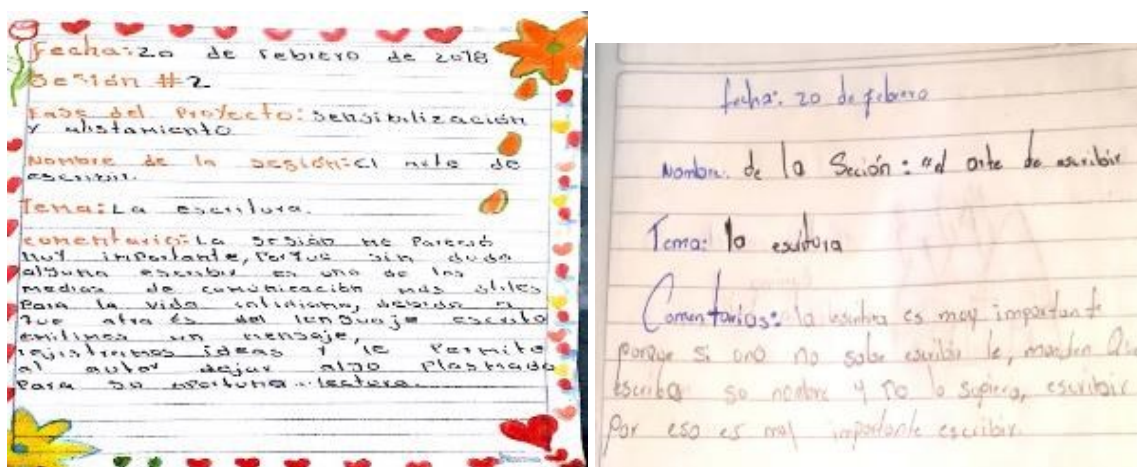 Fecha: 20 de Febrero de 2018
Sesión #2
Fase del Proyecto: Sensibilización
y alistamiento
Nombre de la sesión: El arte de
escribir.
Tema: La escritura.
comentario: La sesión me Pareció
muy importante, Porque sin duda
alguna escribir es uno de los
medios de comunicación más útiles
Para la vida cotidiana, debido a
que atra és del lenguaje escrito
emitimos un mensaje,
rejistramos ideas y le Permite
al autor dejar algo Plasmado
Para su oportuna lectura.
fecha: 20 de febrero
Nombre. de la Sección: "el arte de escribir
Tema: la escritura
Comentarios: la escritura es muy importante
porque si uno no sabe escribir le, manden Que
escriba so nombre y no lo supiera, escribir
Por eso es muy importante escribir.